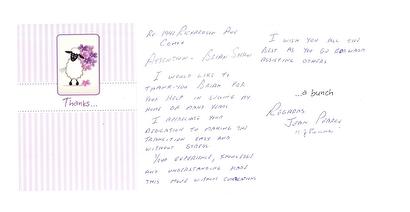 Thanks...
Re 1941 Richardson Ave
Comox
Attention - Brian
I would like to
thank-you Brian for
your help in selling my
home of many years
I appreciate your
dedication to making the
transition easy and
without stress
Your experience, knowledge
and understanding made
this move without complications
I wish you all the
best as you go forward
assisting others
...a bunch
Regards
Joan